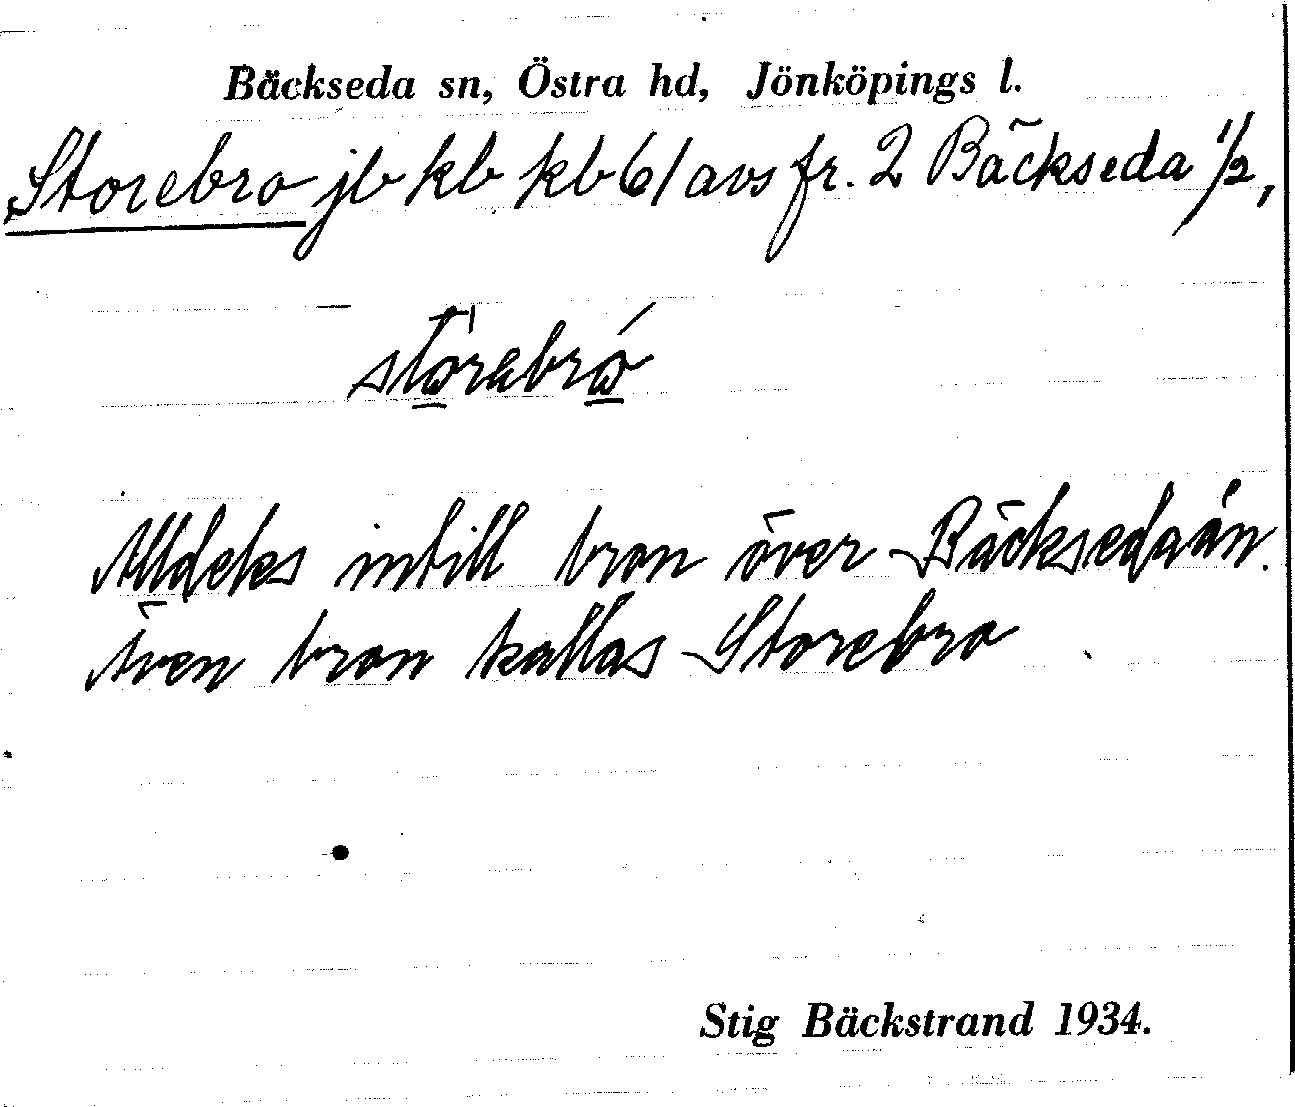 Bäckseda sn, Östra hd, Jönköpings l.
Storebro jb kb kb 61 avs fr. 2 Bäckseda 1/2,
Alldeles intill bron över Bäcksedaån.
Även bron kallas Storebro
Stig Bäckstrand 1934.